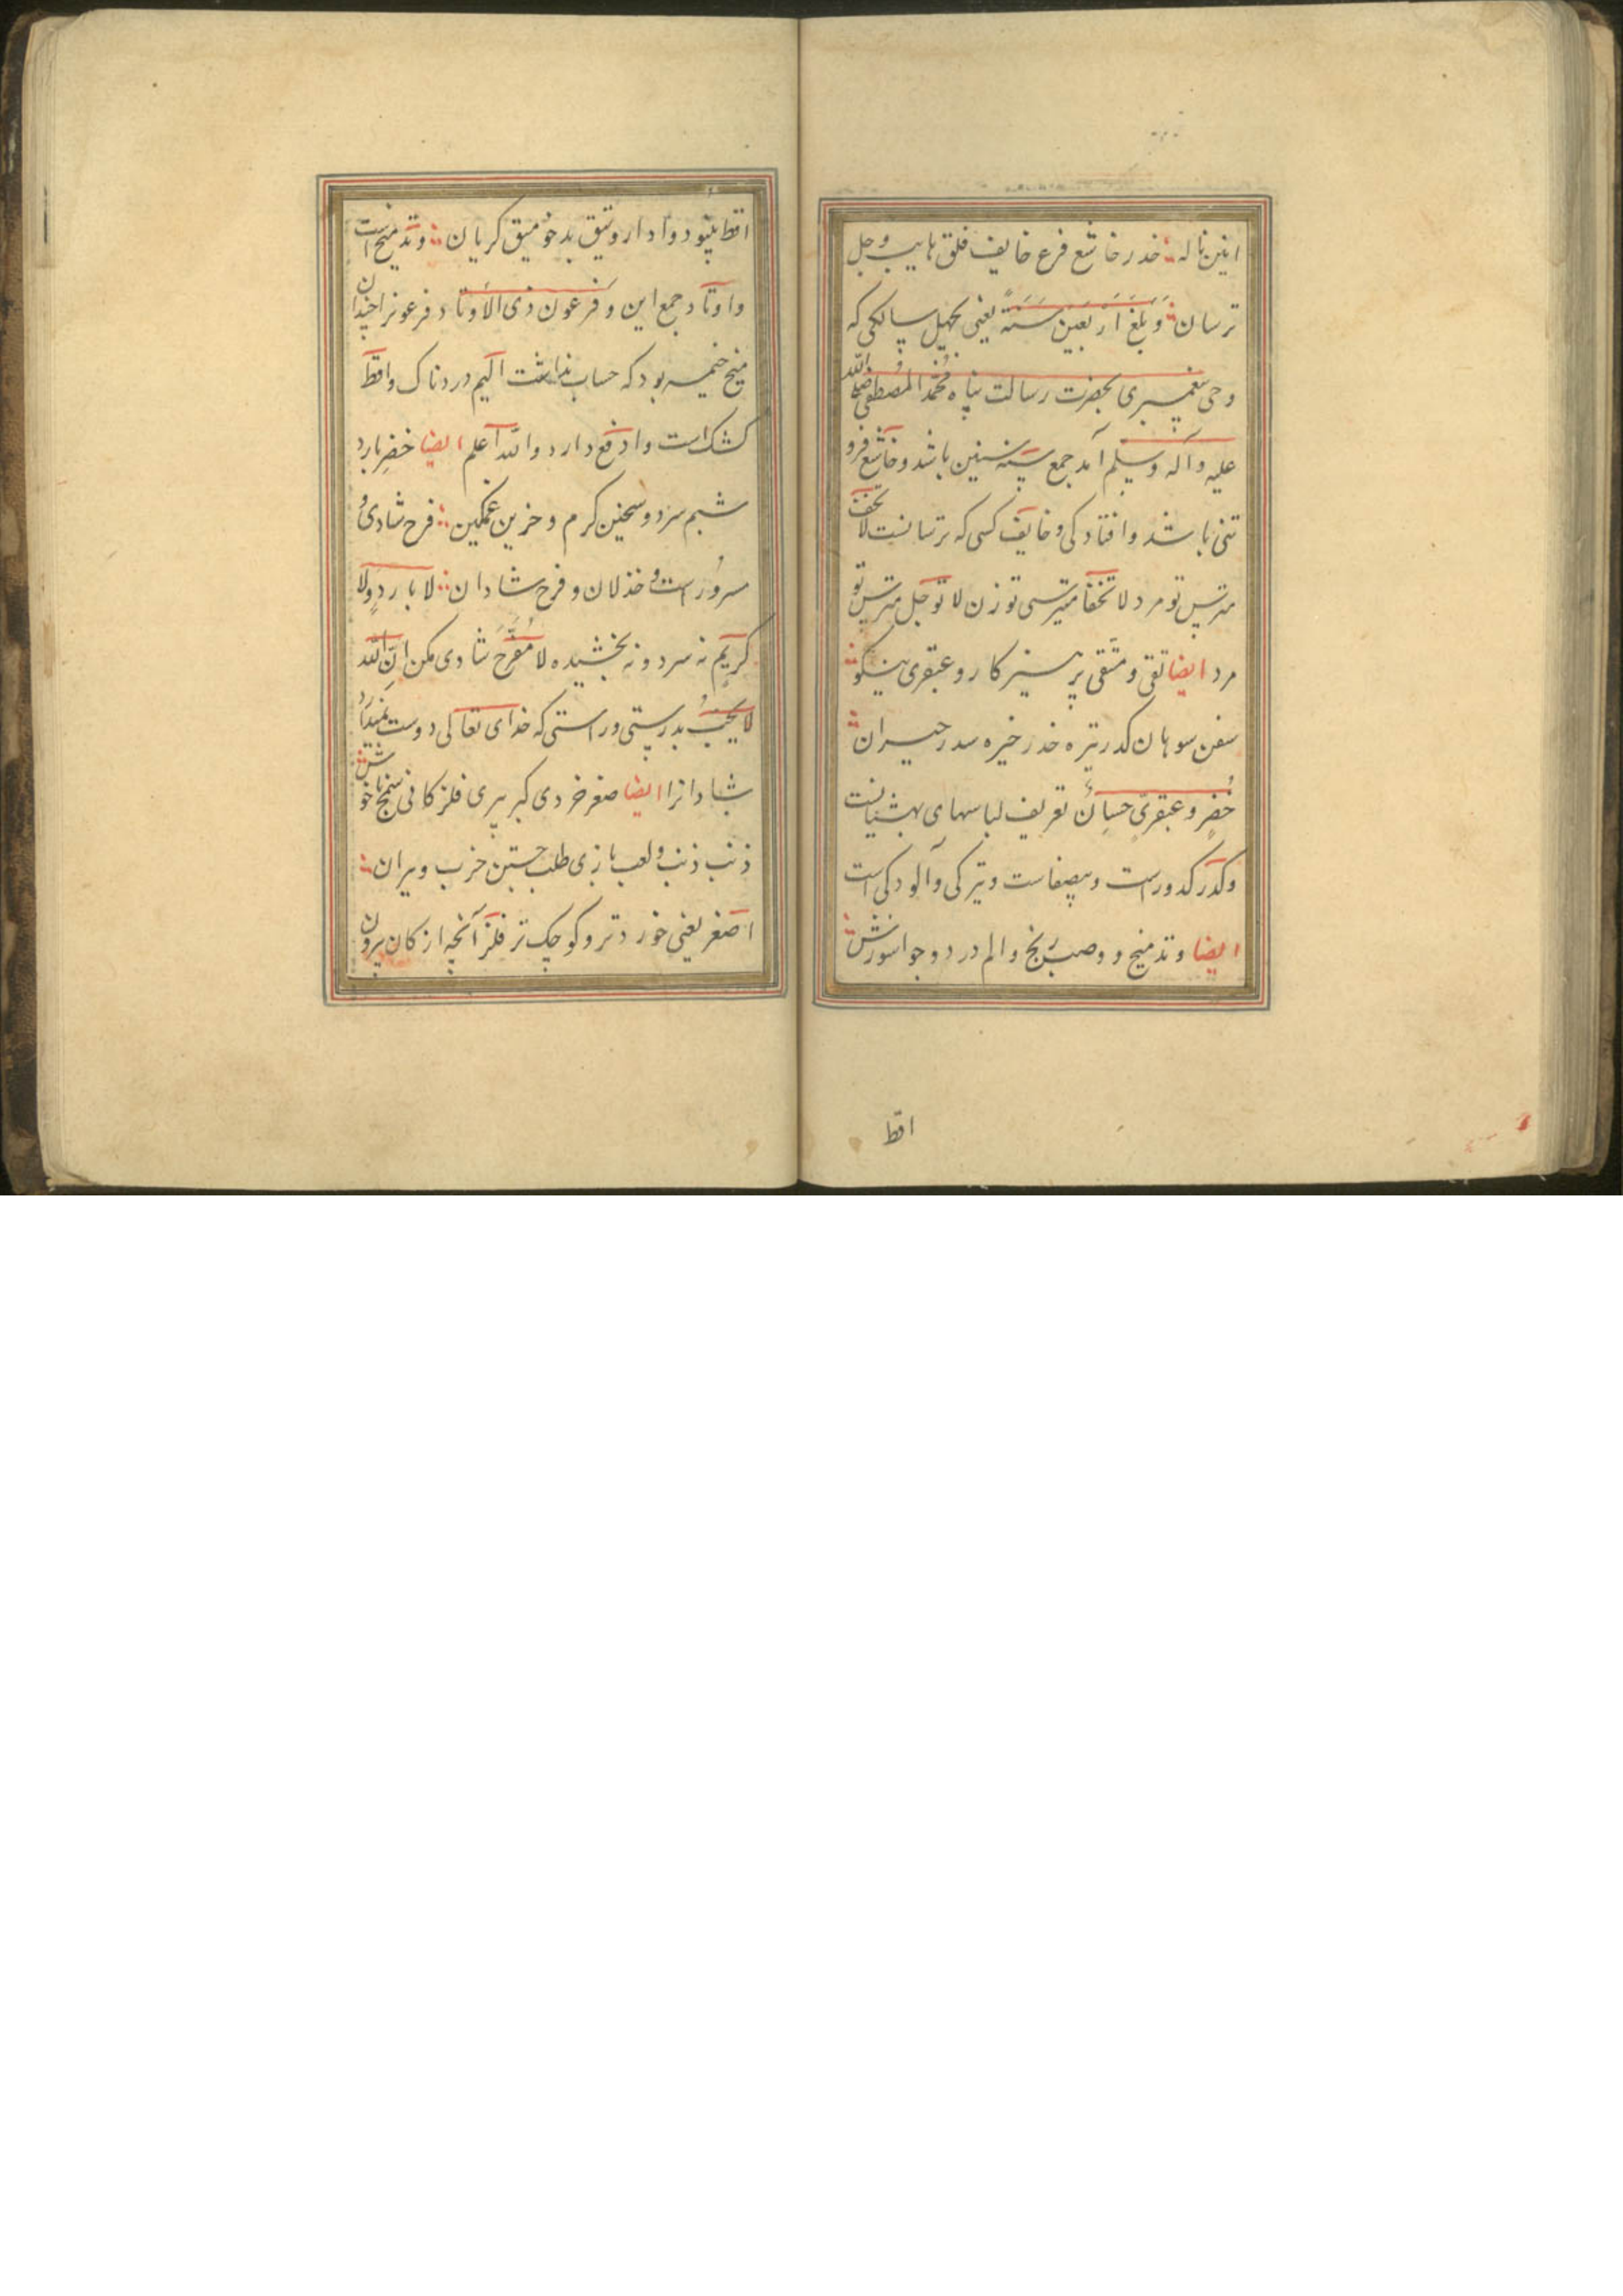 انین ناله خدر خاشع فرع خایف فلق هایب وجل
ترسان وَبَلَغَ اَرْبَعینَ سَنَةً یعنی بچهل سالکی که
وحی پیغمبری بحضرت رسالت پناه مُحَمَّد المُصْطَفی صلی الله
علیه وآله وسلم آمد جمع سنه سنین باشد وخاشع فرو
تنی باشد وافتادکی وخایف کسی که ترسانست لاتخف
مترس تو مرد لاتخفا مترسی تو زن لاتوجل مترس تو
مرد ایضا تقی ومتقی پرهیزکار وعبقری نیکو
سفن سوهان کدر تیره خدر خیره سدر حیران
خُضرٍ وعبقریٍّ حسان تعریف لباسهای بهشتیانست
وکدر کدورت است وبیصفاست وتیرکی وآلودکی است
ایضا وتد میخ و وصب رنج والم درد وجوا سوزش
اقط
اقط پینو دوا دارو تیق بدخو میق کریان وتد میخ است
واوتاد جمع این وَفرعونَ ذی الاَوتاد فرعونرا چندان
میخ خیمه بود که حساب نداشت الیم دردناک واقط
کشک است وادفع دارد والله اعلم ایضا خضر بارد
شبم سرد وسخین کرم وحزین غمکین فرح شادی و
سرور است وخذلان وفرح شادان لا باردٍ ولا
کریمٍ نه سرد ونه بخشیده لا تفرح شادی مکن انّ الله
لا یحب بدرستی وراستی که خدای تعالی دوست نمیدارد
شادانرا ایضا صغر خردی کبر پیری فلز کانی سمج ناخوش
ذنب ذنب ولعب بازی طلب جستن خرب ویران
اصغر یعنی خوردتر وکوچک تر فلز آنچه از کان بیرون